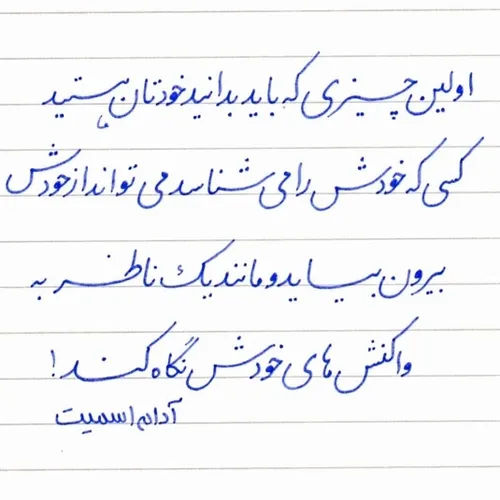 اولین چیزی که باید بدانید خودتان هستید
کسی که خودش را می شناسد می تواند از خودش
بیرون بیاید و مانند یک ناظر به
واکنش های خودش نگاه کند!
آدام اسمیت